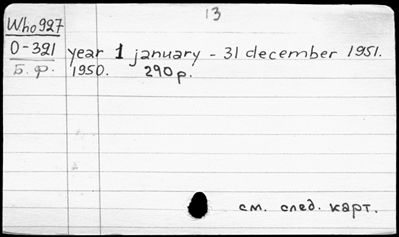 13
Who927
0-321 year 1 january - 31 december 1951.
Б. ф. 1950. 290 p.
см. след. карт.